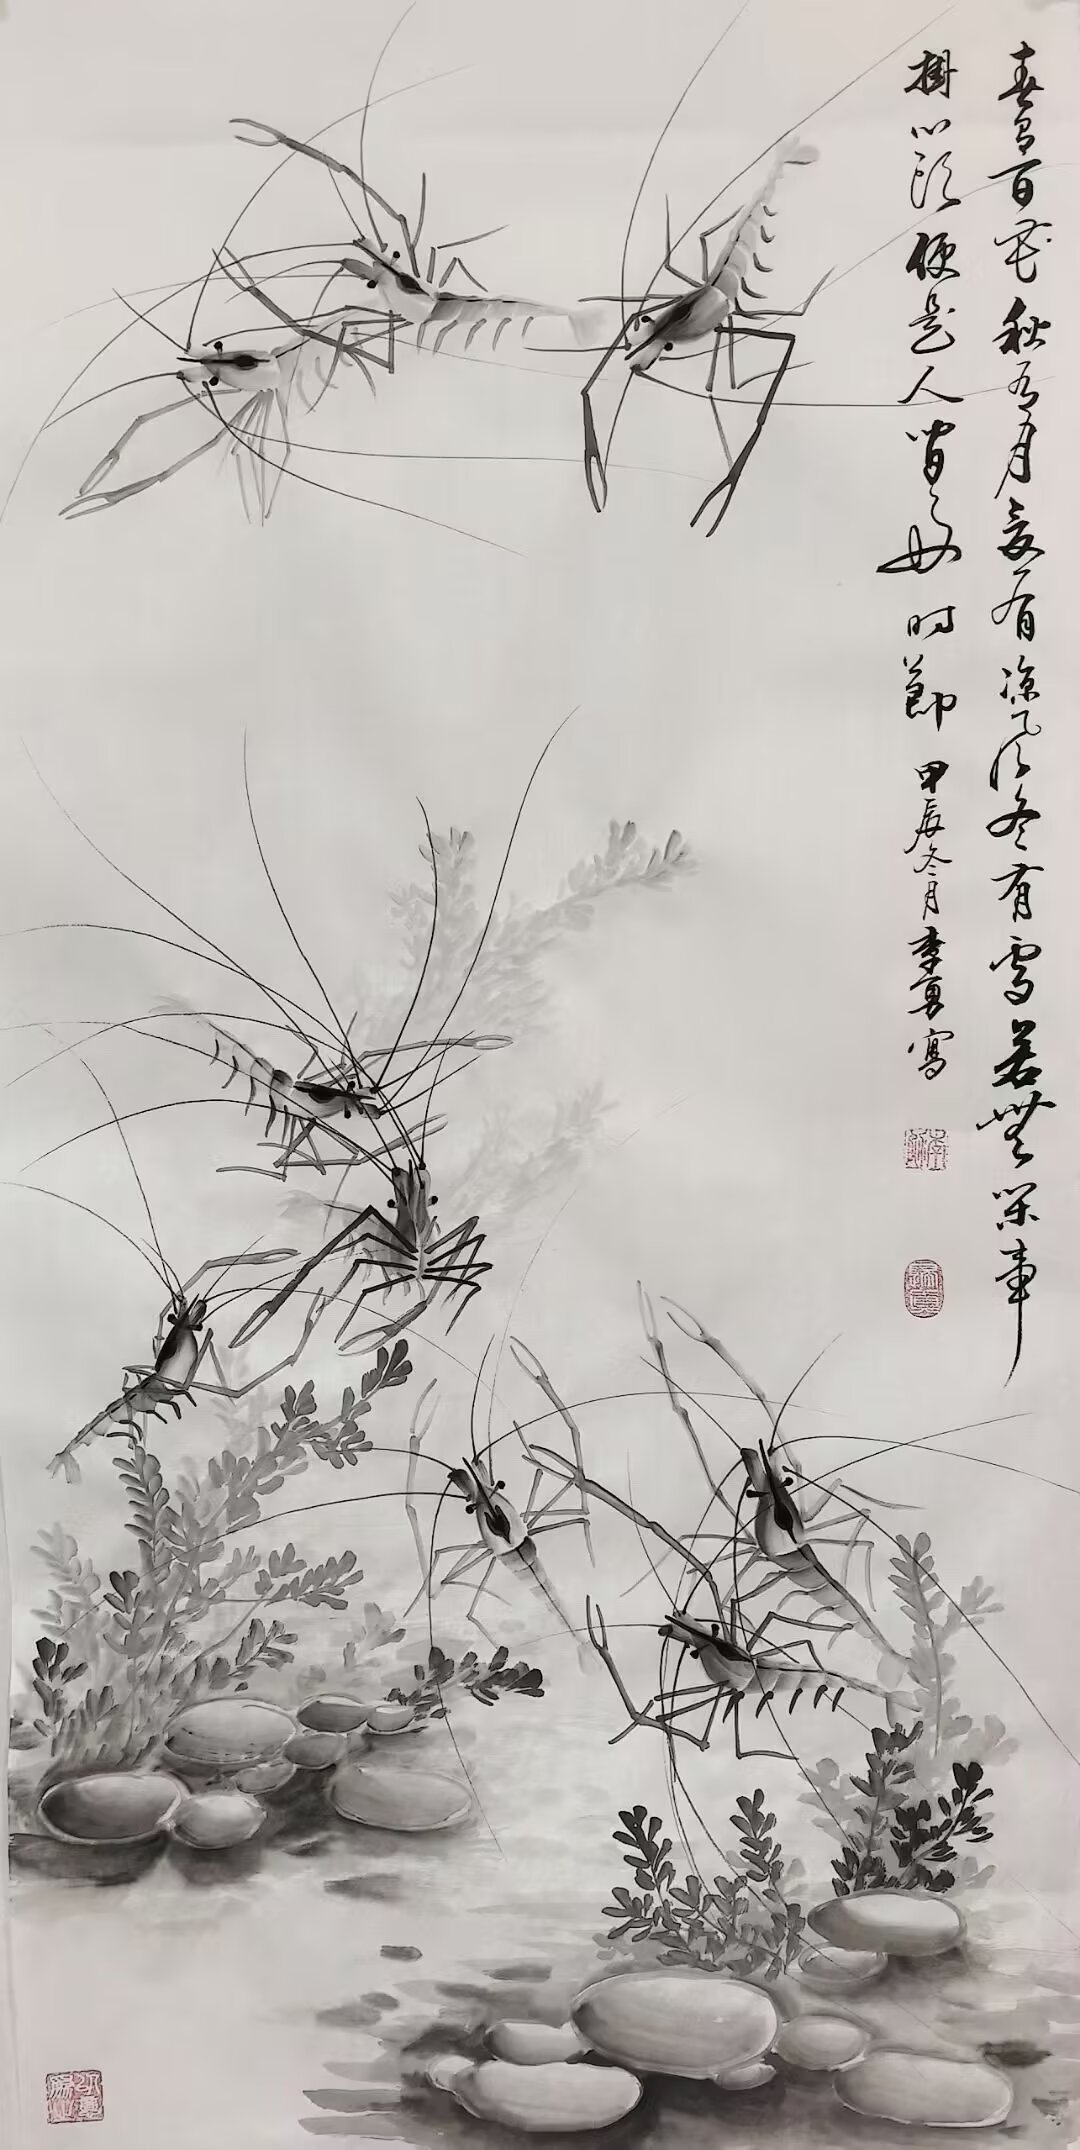 春有百花秋有月夏有凉风冬有雪若无闲事
挂心头便是人间好时节
甲辰冬月李勇写